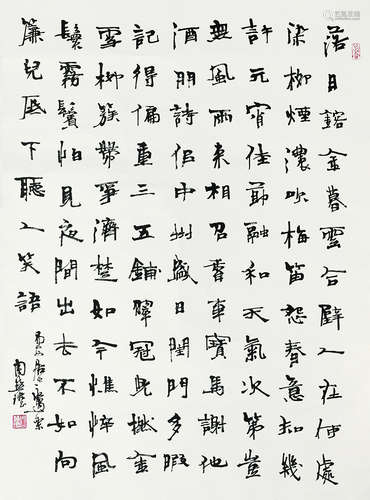 落日鎔金暮雲合璧人在何處
染柳煙濃吹梅笛怨春意知幾
許元宵佳節融和天氣次第豈
無風雨來相召香車寶馬謝他
酒朋詩侶中州盛日閨門多暇
記得偏重三五鋪翠冠兒撚金
雪柳簇帶爭濟楚如今憔悴風
鬟霧鬢怕見夜間出去不如向
簾兒底下聽人笑語